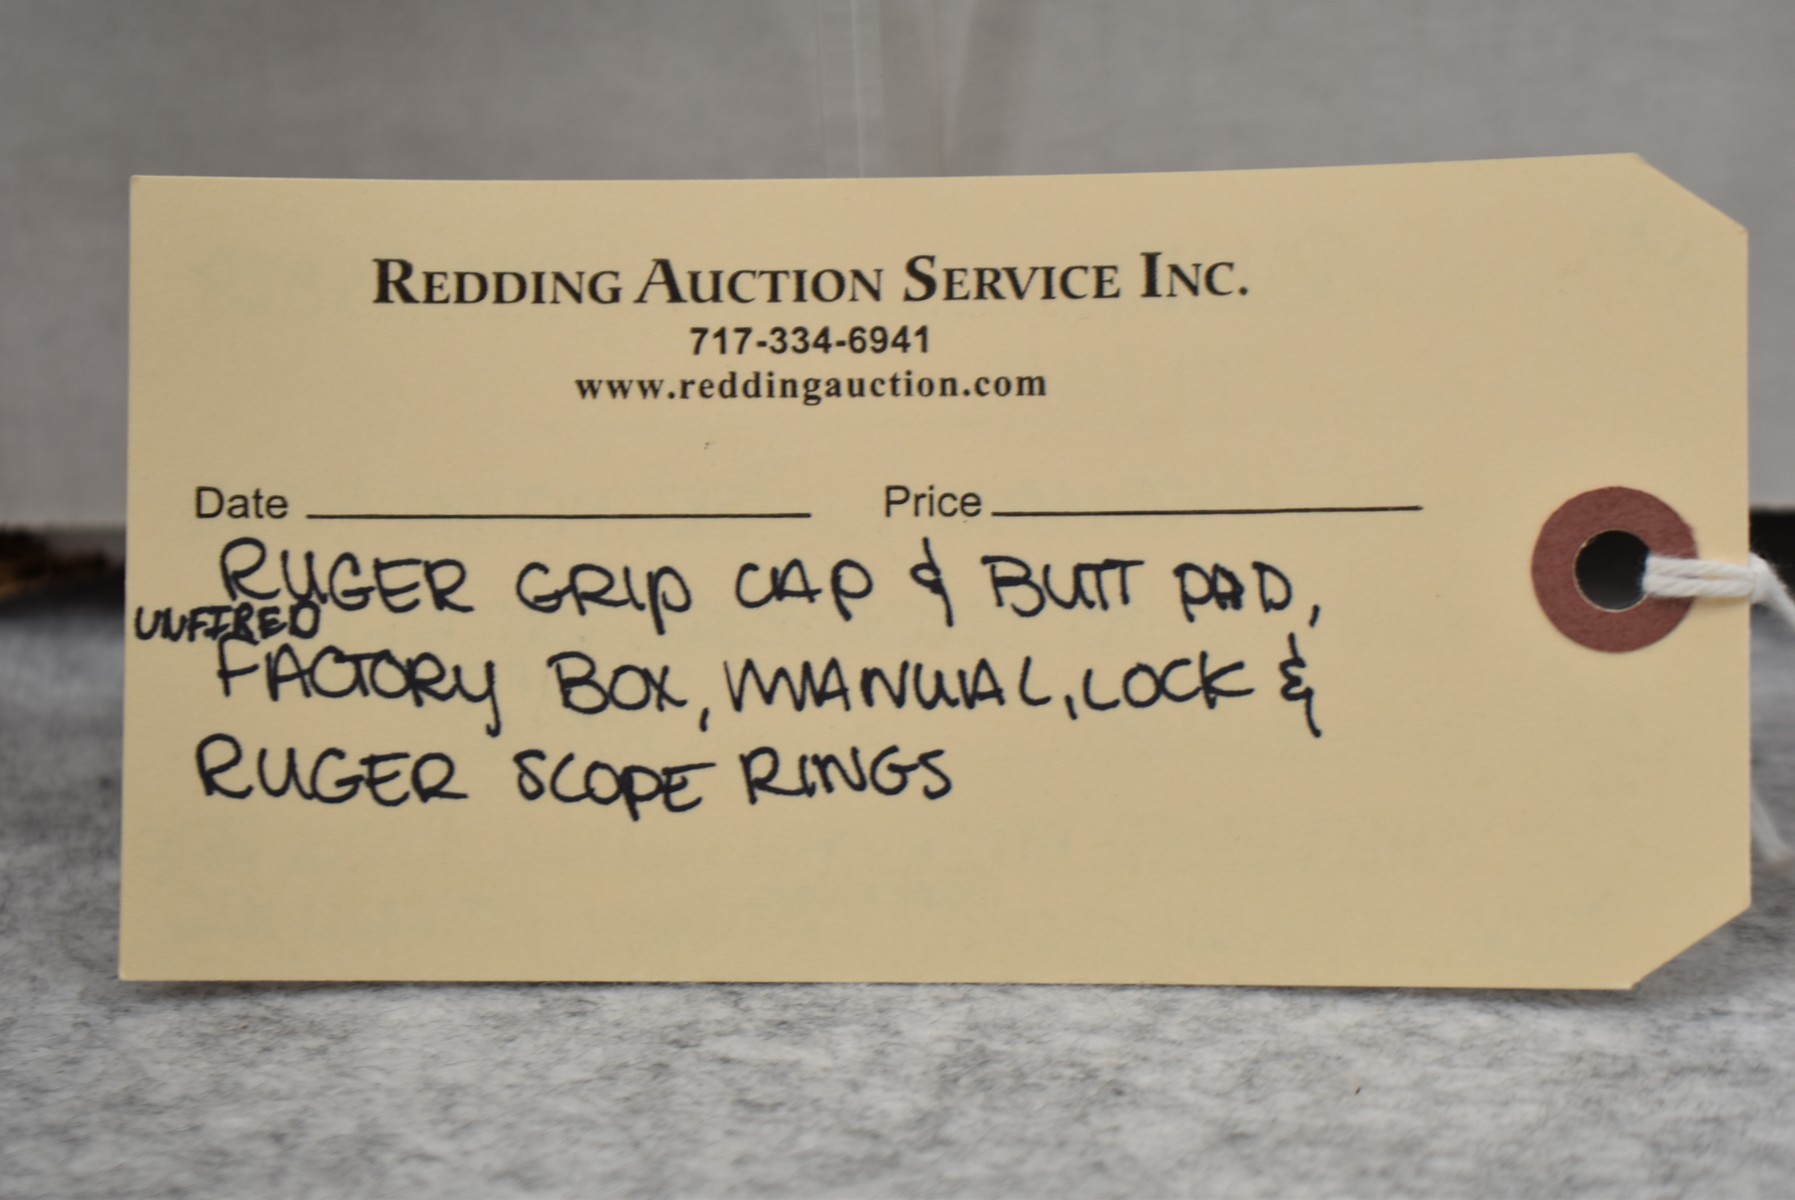 REDDING AUCTION SERVICE INC.
717-334-6941
www.reddingauction.com
Date Price
RUGER GRIP CAP & BUTT PAD,
UNFIRED
FACTORY BOX, MANUAL, LOCK &
RUGER SCOPE RINGS